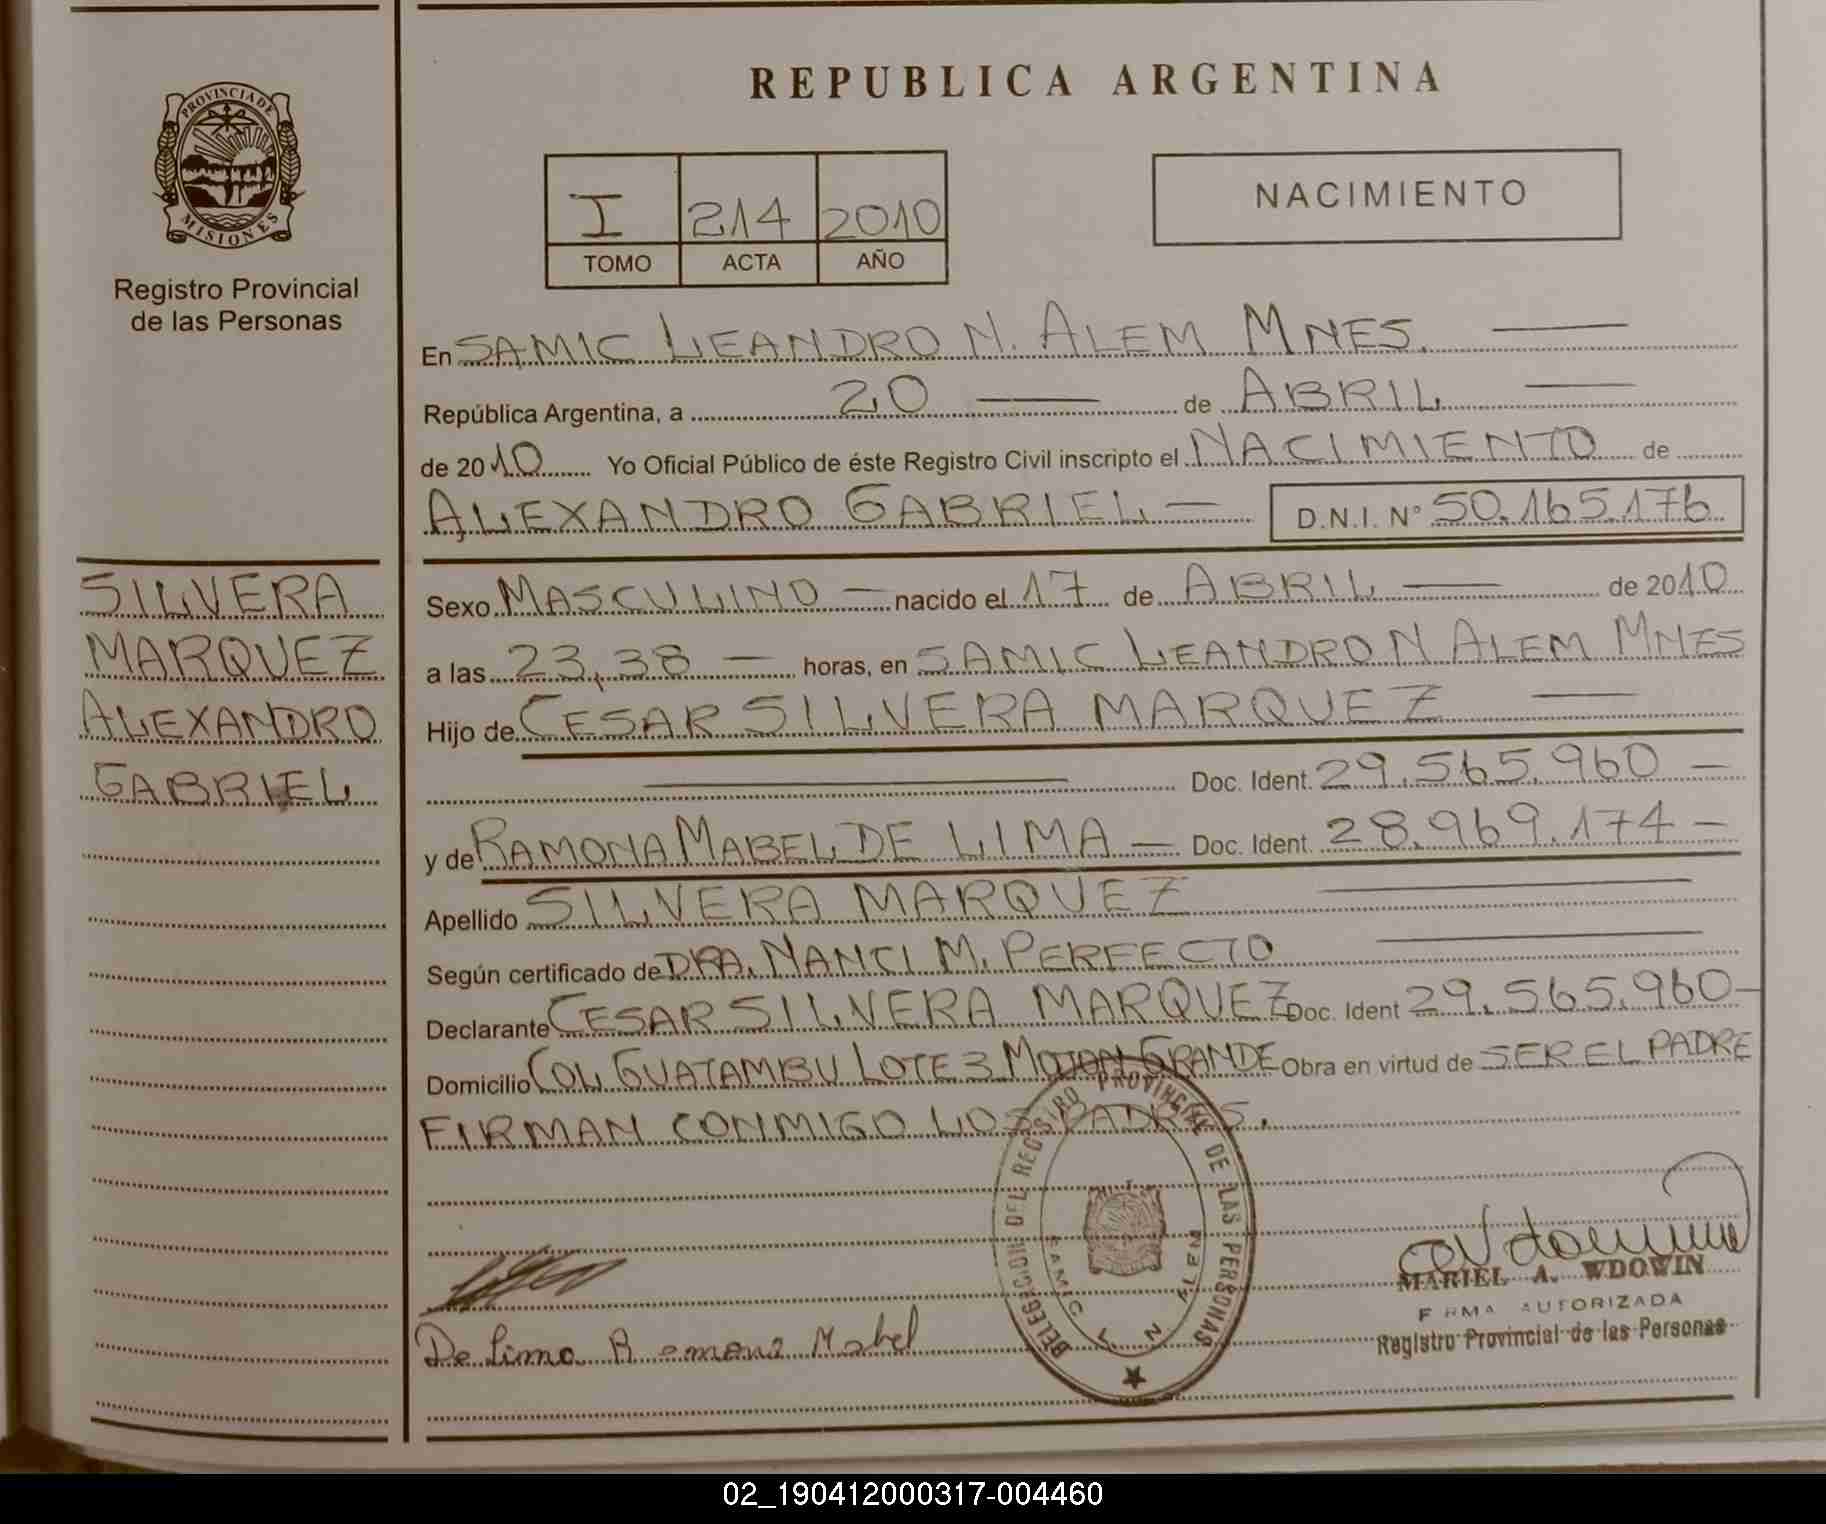 PROVINCIA DE
MISIONES
Registro Provincial
de las Personas
SILVERA
MARQUEZ
ALEXANDRO
GABRIEL
REPUBLICA ARGENTINA
I 214 2010
TOMO ACTA AÑO
NACIMIENTO
En SAMIC LEANDRO N. ALEM MNES.
República Argentina, a 20 de ABRIL
de 2010 Yo Oficial Público de éste Registro Civil inscripto el NACIMIENTO de
ALEXANDRO GABRIEL D.N.I. N° 50.165.176
Sexo MASCULINO nacido el 17 de ABRIL de 2010
a las 23,38 horas, en SAMIC LEANDRO N ALEM MNES
Hijo de CESAR SILVERA MARQUEZ
Doc. Ident. 29.565.960
y de RAMONA MABEL DE LIMA Doc. Ident. 28.969.174
Apellido SILVERA MARQUEZ
Según certificado de DRA. NANCI M. PERFECTO
Declarante CESAR SILVERA MARQUEZ Doc. Ident 29.565.960
Domicilio COL GUATAMBU LOTE 3 MOJON GRANDE Obra en virtud de SER EL PADRE
FIRMAN CONMIGO LOS PADRES.
DELEGACION DEL REGISTRO PROVINCIAL DE LAS PERSONAS
SAMIC L. N. ALEM
De Lima Ramona Mabel
MARIEL A. WDOWIN
FIRMA AUTORIZADA
Registro Provincial de las Personas
02_190412000317-004460